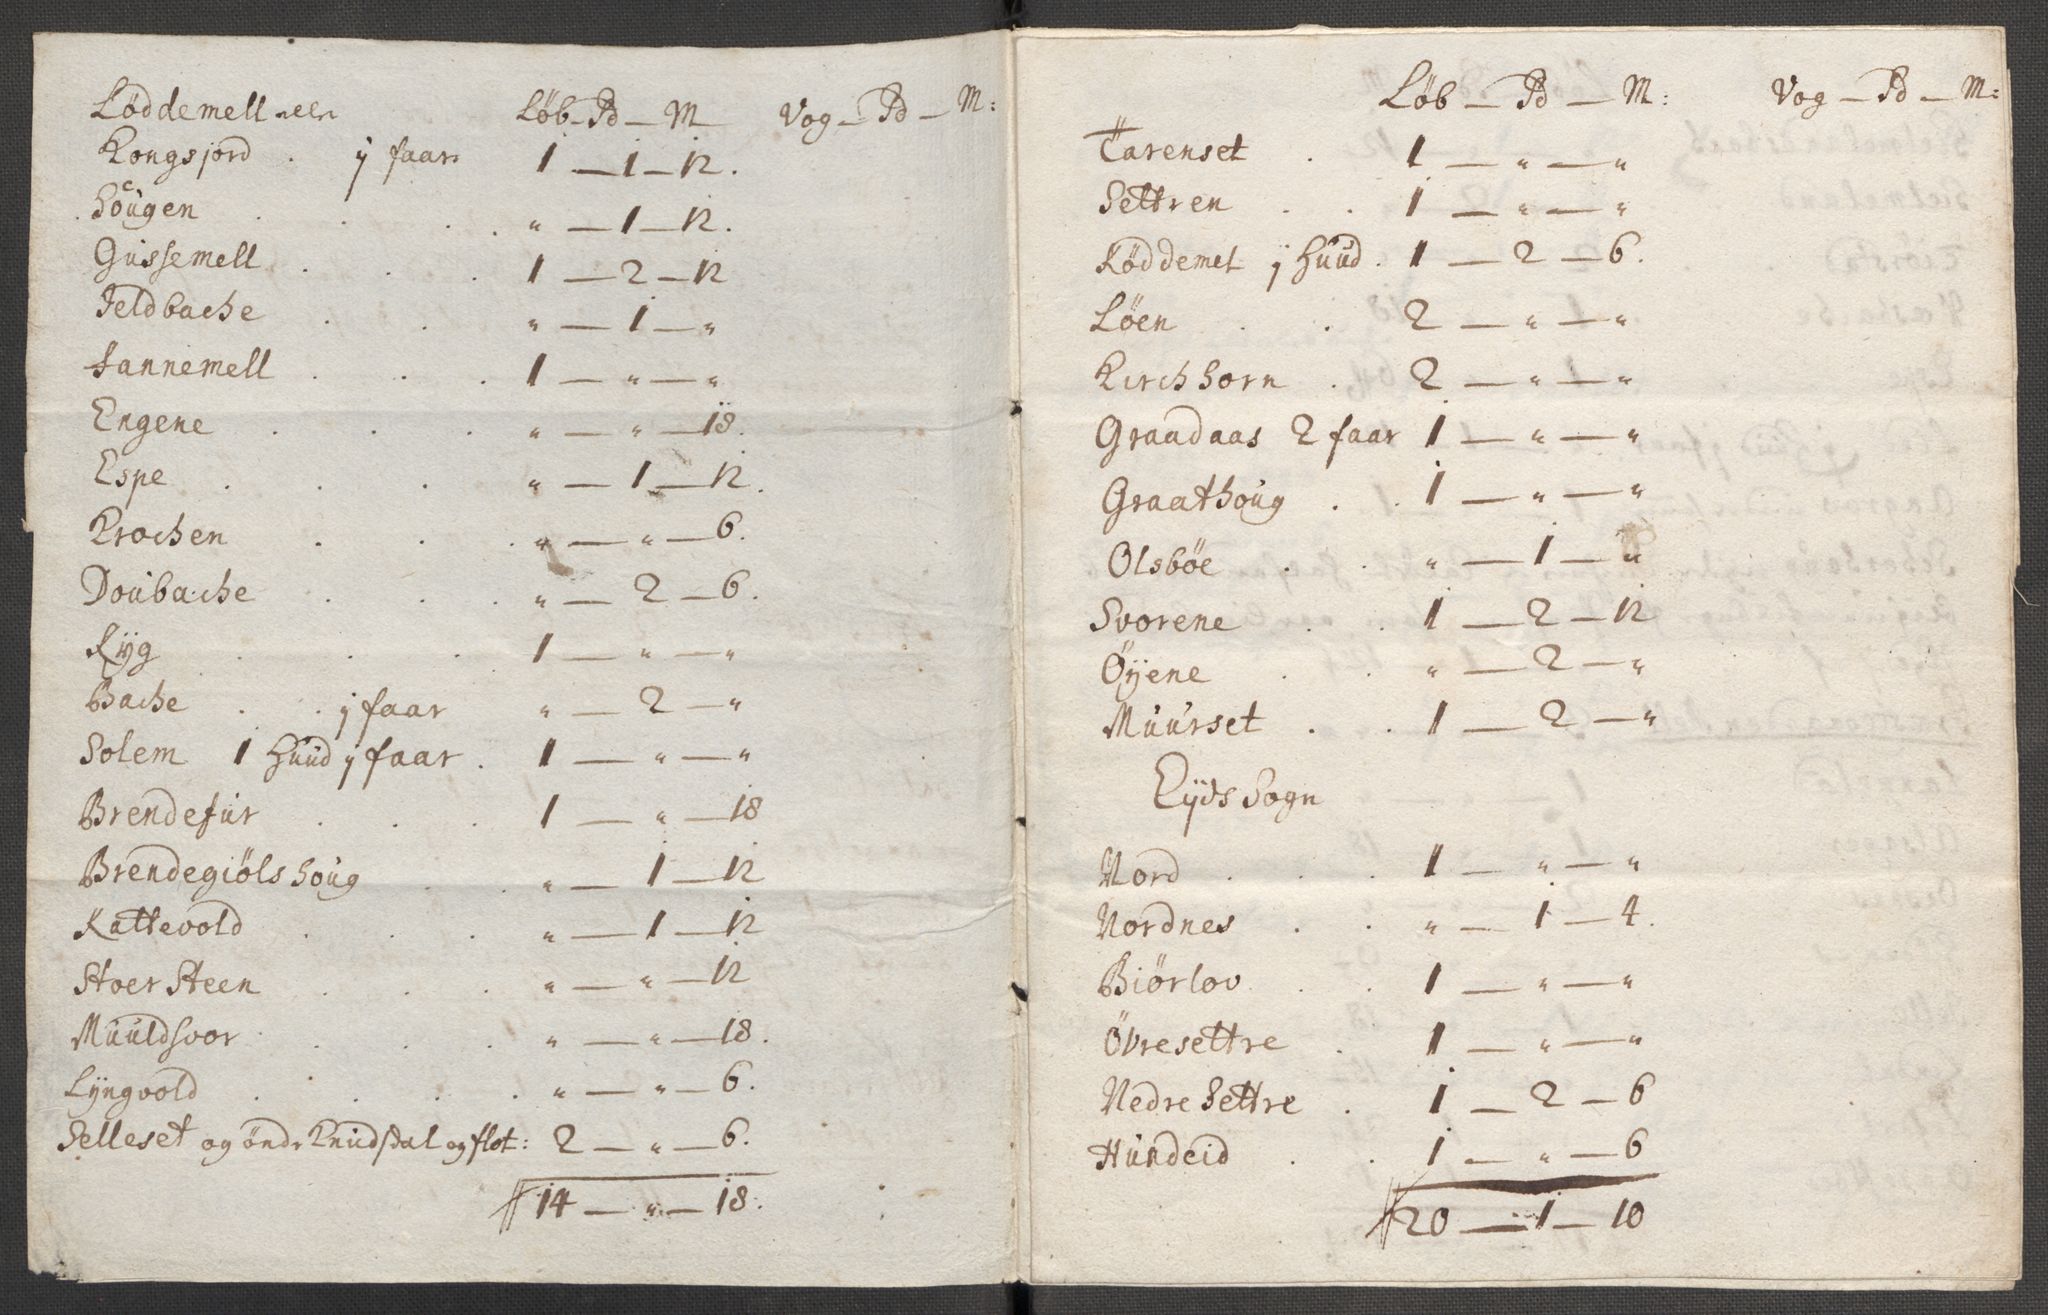 Løddemell Løb — Pd — M Vog — Pd — M:
Kongsjord . ÿ faar 1 — 1 — 12.
Höugen . . . . " — 1 — 12.
Gussemell . . . 1 — 2 — 12
Feldbache . . " — 1 — "
Hannemell . . . 1 — " — "
Engene . . . " — " — 18.
Espe . . . " — 1 — 12.
Krochen . . . " — " — 6.
Doubache . . . " — 2 — 6.
Rÿg . . . 1 — " — "
Bache . . j faar " — 2 — "
Solem 1 Huud j faar . 1 — " — "
Brendefur . . . 1 — " — 18
Brendegiölshoug . . " — 1 — 12
Kattevold . . . " — 1 — 12
Stoer Steen . . . " — " — 12
Muuldsvor . . . " — " — 18.
Lÿngvold . . . . " — " — 6.
Selleset og öndr Knudsdal og flot: 2 — " — 6.
14 — " — 18.
Løb — Pd — M: Vog — Pd — M:
Tarenset . 1 — " — "
Settren . . 1 — " — "
Køddemel j Huud . 1 — 2 — 6.
Löen . . 2 — " — "
Kirchhorn . 2 — " — "
Graadaas 2 faar 1 — " — "
Graathoug . . 1 — " — "
Olsböe . . " — 1 — "
Svorene . . 1 — 2 — 12
Öÿene . . " — 2 — "
Muurset . . 1 — 2 — "
Eÿds Sogn
Nord . . . 1 — " — "
Nordnes . . " — 1 — 4.
Biörlov . . 1 — " — "
Övresettre . 1 — " — "
Nedre Settre . 1 — 2 — 6
Hundeid . . 1 — " — 6
20 — 1 — 10